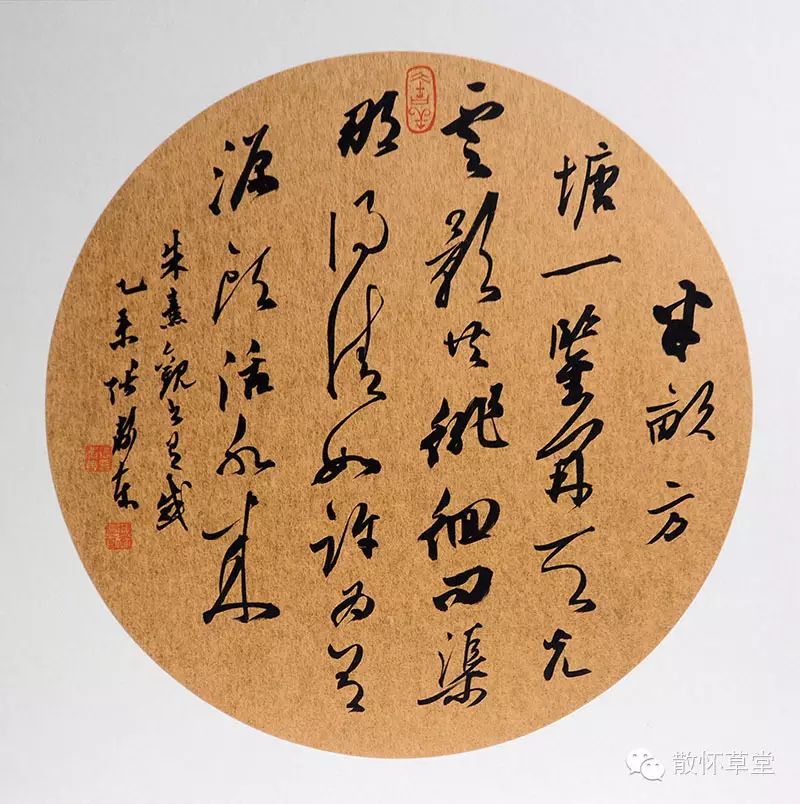 半畝方
塘一鑒開天光
雲影共徘徊問渠
那得清如許為有
源頭活水來
朱熹觀書有感
乙未張
散怀草堂